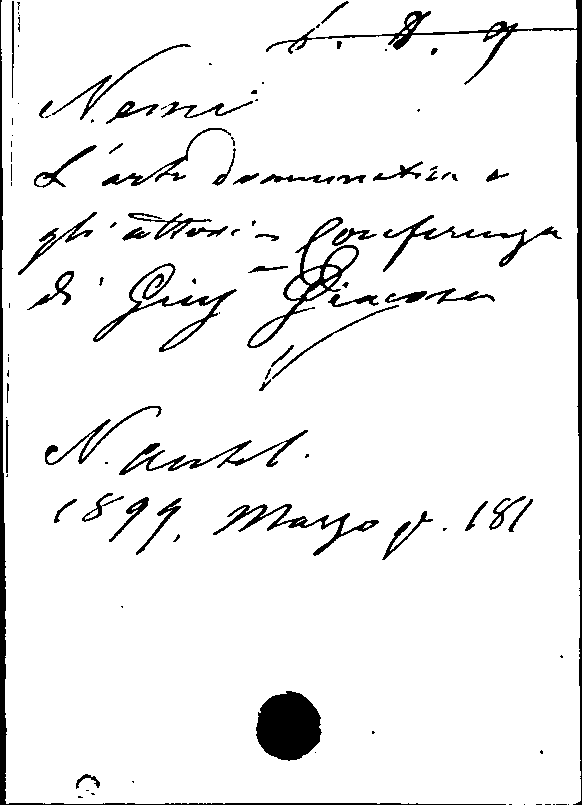 6. D. 9
Nemi
L'arte drammatica e
gli attori - Conferenza
di Giusˢ Giacosa
N. Antol.
1899, Marzo p. 181